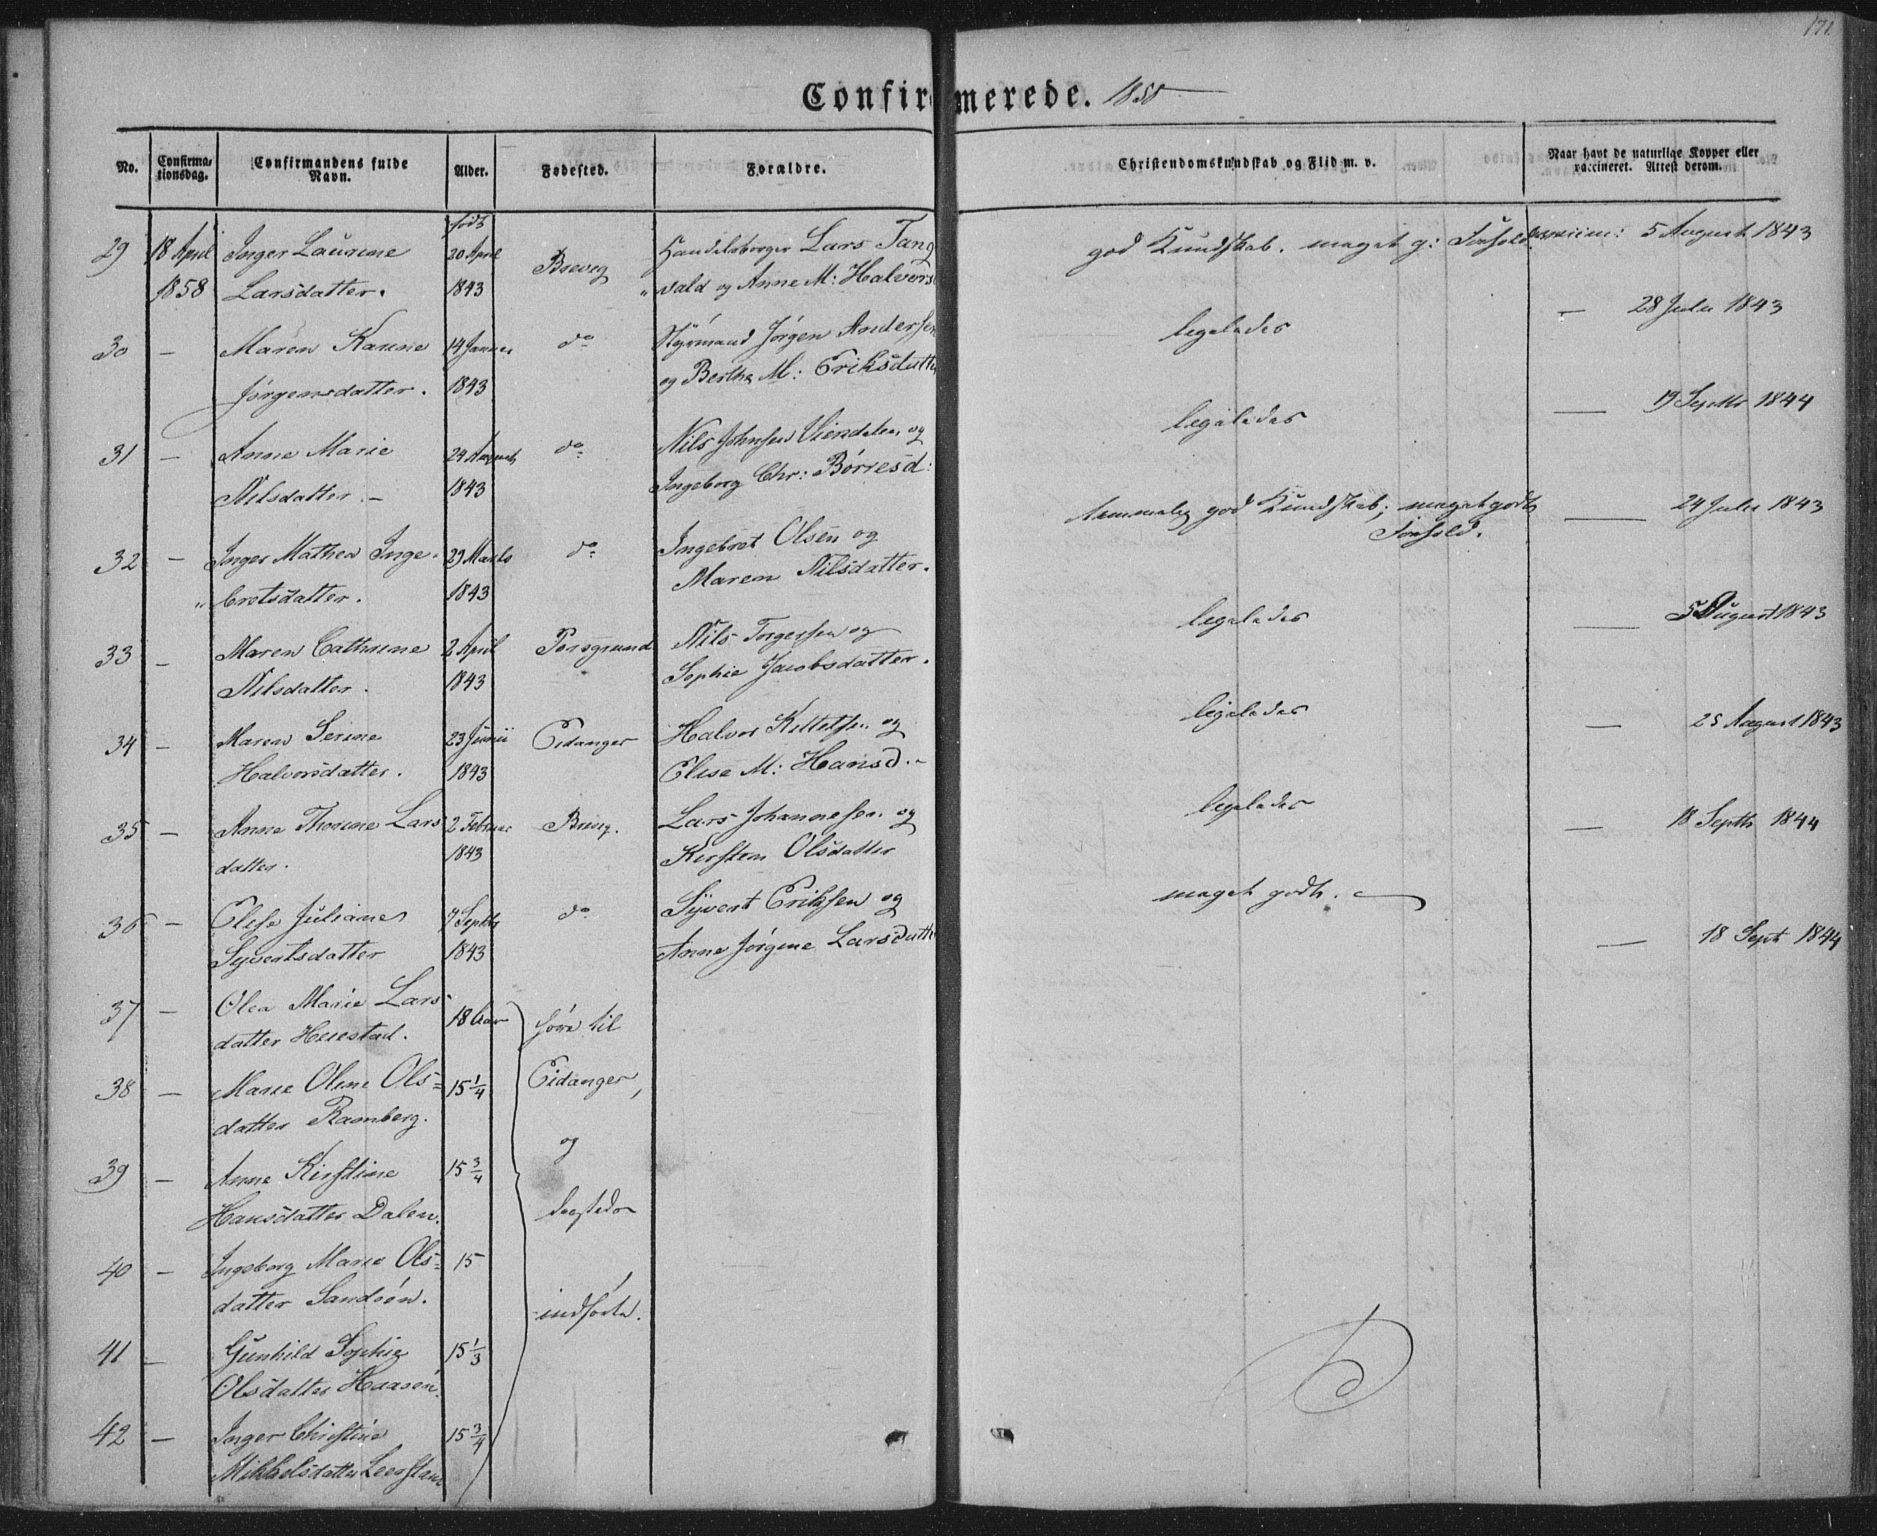 171
Confirmerede. 1858
No.
Confirmationsdag.
Confirmandens fulde Navn.
Alder.
Fødested.
Forældre.
Christendomskundskab og Flid m. v.
Naar havt de naturlige Kopper eller vaccineret. Attest derom.
født
29 18 April Inger Laurine 20 April Brevig Handelsborger Lars Tang god Kundskab. meget g: Forhold 5 August 1843
1858 Larsdatter. 1843 vald og Anne M: Halvors
30 — Maren Karine 14 Januar do Styrmand Jørgen Andersen ligeledes — 28 Julii 1843
Jørgensdatter. 1843 og Berthe M: Eriksdatter
31 — Anne Marie 24 August do Nils Johnsen og ligeledes — 19 Septbr 1844
Nilsdatter. — 1843 Ingeborg Chr: Børresd:
32 — Inger Mathea Inge- 29 Marts do Ingebret Olsen og temmelig god Kundskab; meget godt — 24 Julii 1843
bretsdatter. 1843 Maren Nilsdatter. Forhold.
33 — Maren Cathrine 2 April Porsgrund Nils Torgersen og ligeledes — 5 August 1843
Nilsdatter. 1843 Sophie Jacobsdatter.
34 — Maren Serine 23 Junii Eidanger Halvor Kittelsen og ligeledes — 25 August 1843
Halvorsdatter. 1843 Elise M: Hansd. —
35 — Anne Thorine Lars 2 Februar Brevig. Lars Johannesen og ligeledes — 18 Septb 1844
datter. 1843 Kirsten Olsdatter
36 — Elise Juliane 7 Septbr do Syvert Eriksen og meget godt. — — 18 Sept 1844
Syvertsdatter 1843 Anne Jørgine Larsdatter
37 — Olea Marie Lars- 18 Aar høre til
datter Heiestad.
38 — Marie Oline Ols- 15 1/4 Eidanger,
datter Ramberg.
og
39 — Anne Kirstine 15 3/4
Hansdatter Dalen. dersteds
40 — Ingeborg Marie Ols- 15
datter Sandøen. indførte.
41 — Gunhild Sophie 15 1/3
Olsdatter Haasen.
42 — Inger Christine 15 3/4
Mikkelsdatter Leerstang